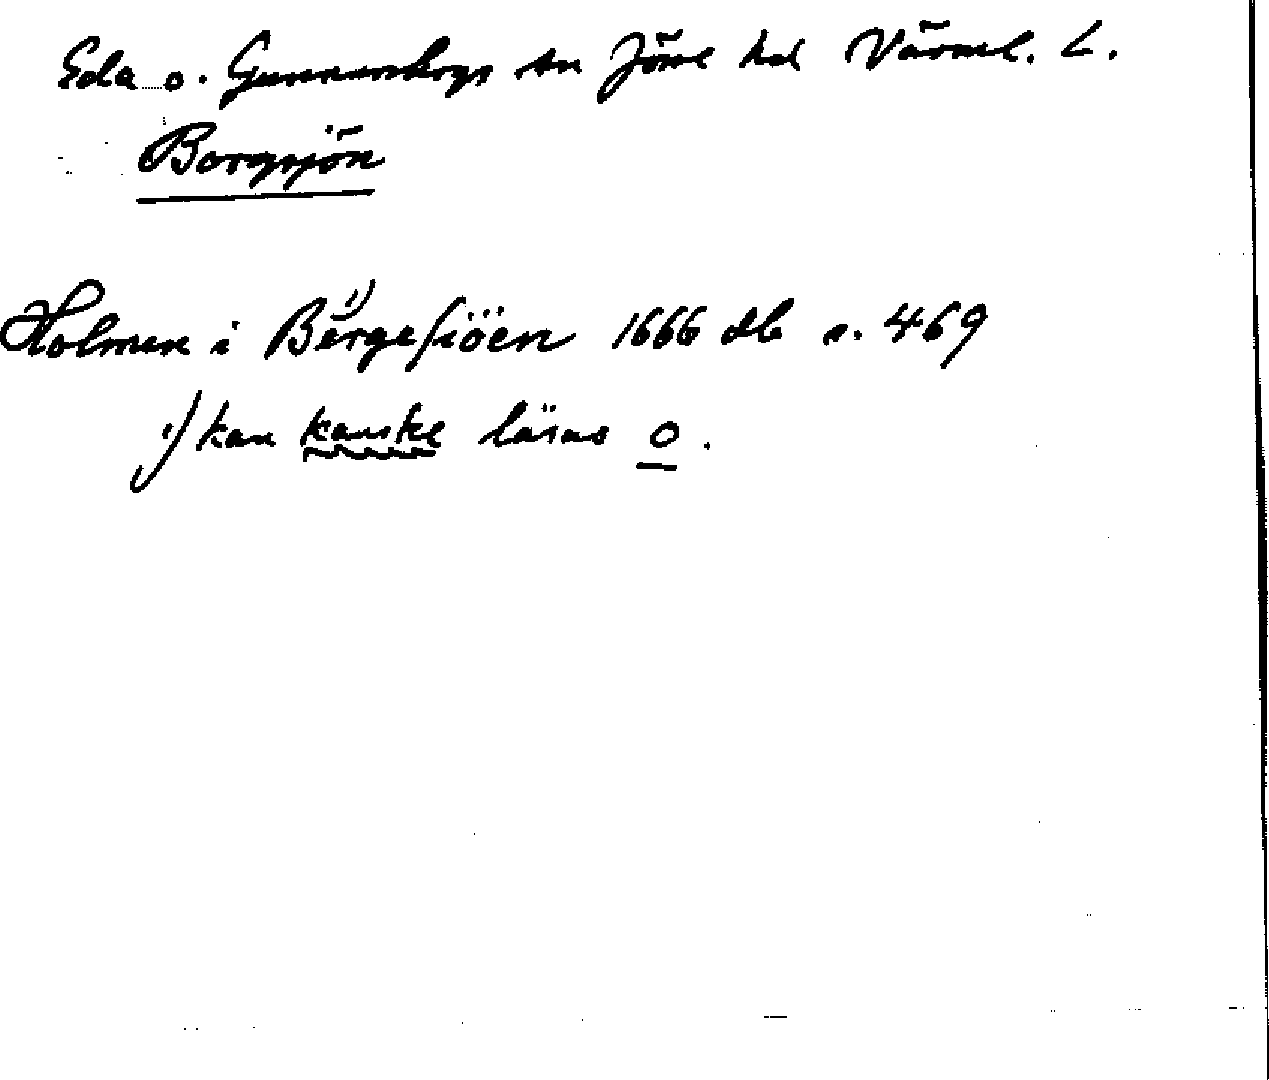 Eda o. Gunnarskogs sn Jösse hd Värml. L.
Borgsjön
Holmen i Bergesiöen 1666 db s. 469
1)
1) kan kanske läsas o.